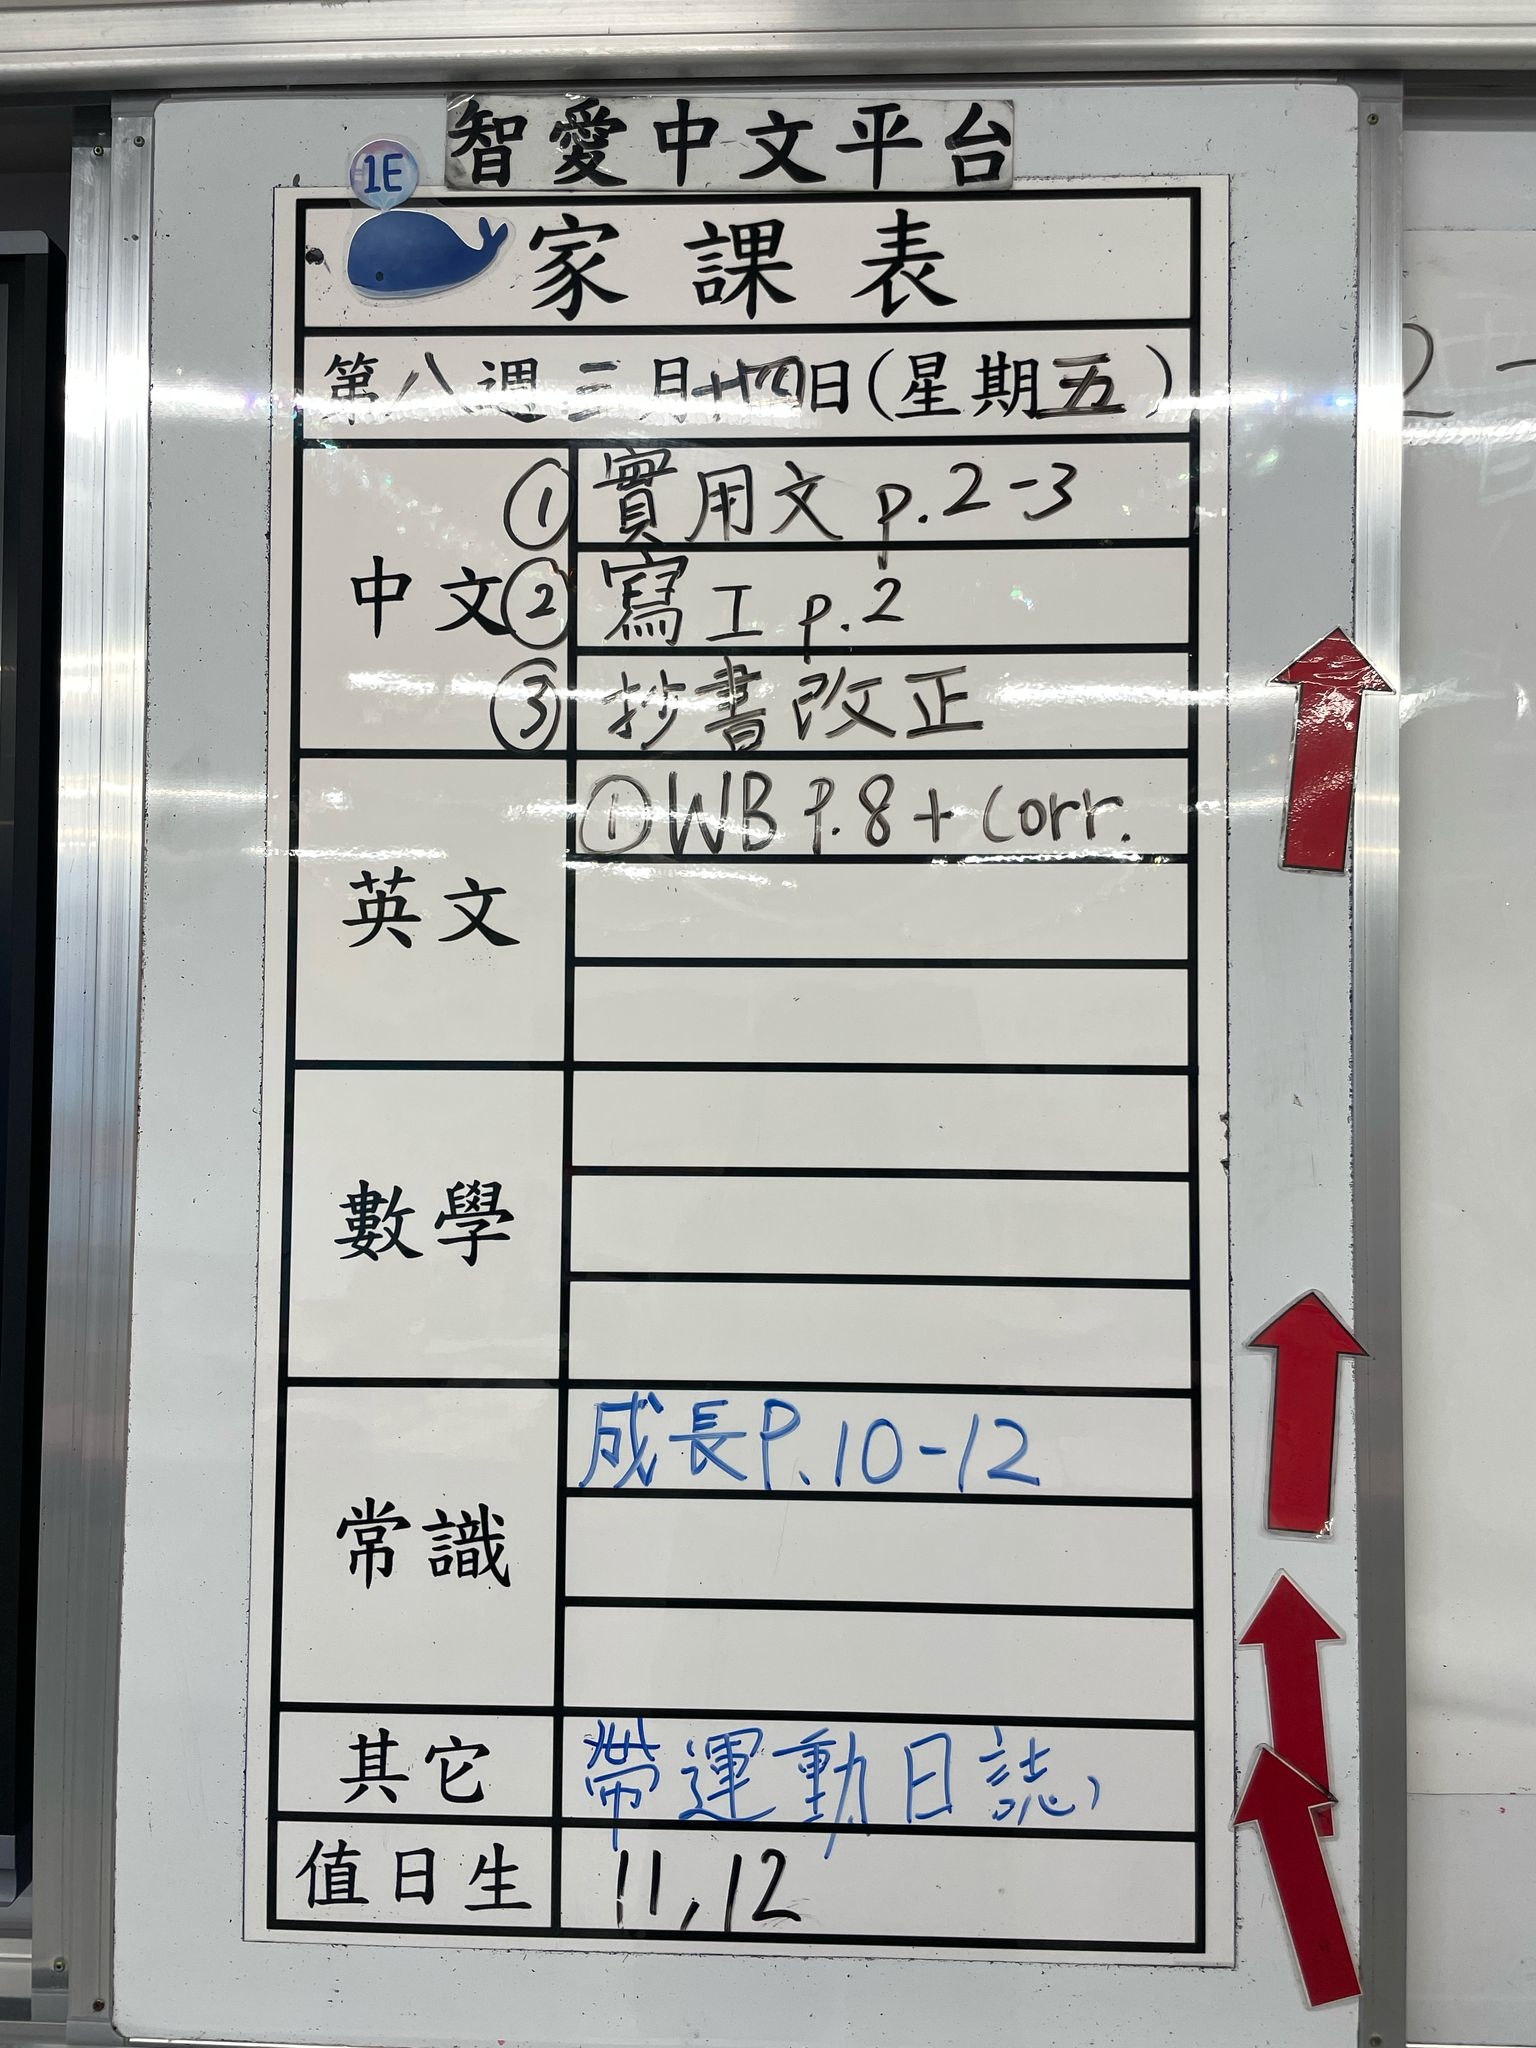 智愛中文平台
1E
家課表
第八週三月十四日(星期五)
中文
① 實用文 p.2-3
② 寫工 p.2
③ 抄書改正
英文
① WB P.8 + Corr.
數學
常識
成長P.10-12
其它
帶運動日誌
值日生
11,12